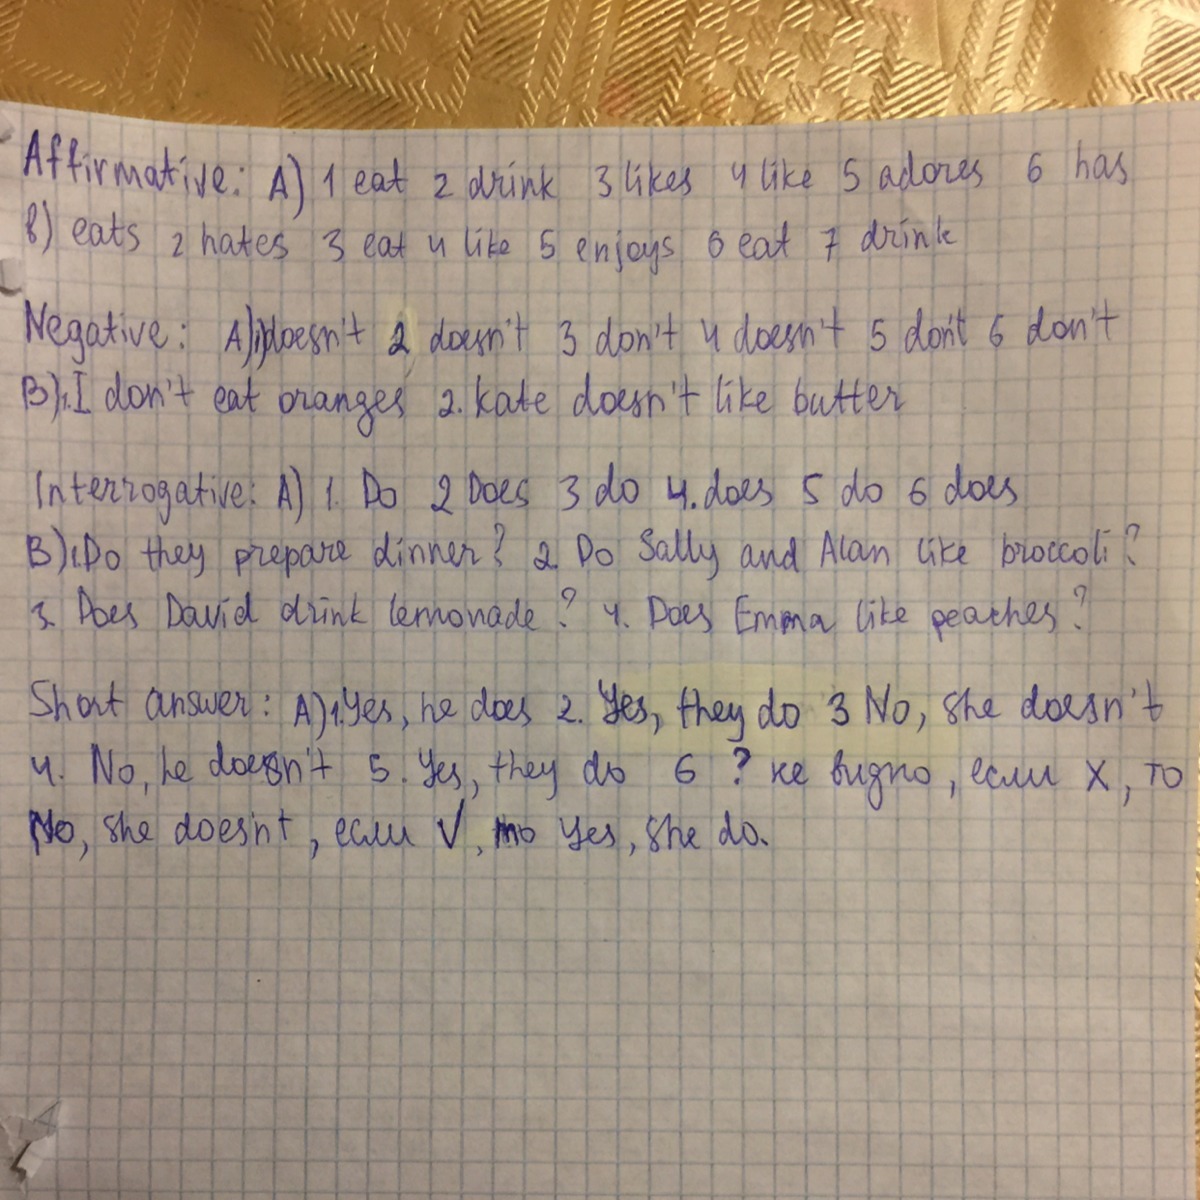 Affirmative: A) 1 eat 2 drink 3 likes 4 like 5 adores 6 has
B) eats 2 hates 3 eat 4 like 5 enjoys 6 eat 7 drink
Negative: A) 1) doesn't 2 doesn't 3 don't 4 doesn't 5 don't 6 don't
B) 1. I don't eat oranges 2. Kate doesn't like butter
Interrogative: A) 1. Do 2 Does 3 do 4. does 5 do 6 does
B) 1. Do they prepare dinner? 2. Do Sally and Alan like broccoli?
3. Does David drink lemonade? 4. Does Emma like peaches?
Short answer: A) 1. Yes, he does 2. Yes, they do 3 No, she doesn't
4. No, he doesn't 5. Yes, they do 6 ? не видно, если X, то
No, she doesn't, если V, то Yes, she do.